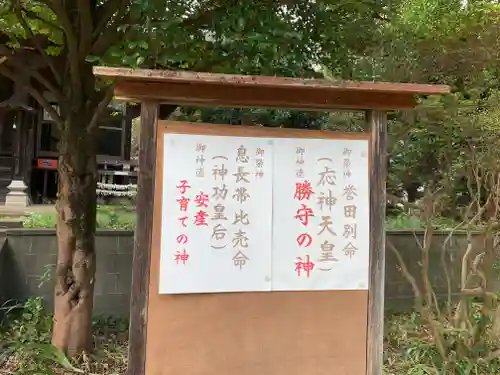 御祭神
誉田別命
(応神天皇)
御神遠
勝守の神
御祭神
息長帯比売命
(神功皇后)
御神遠
安産
子育ての神